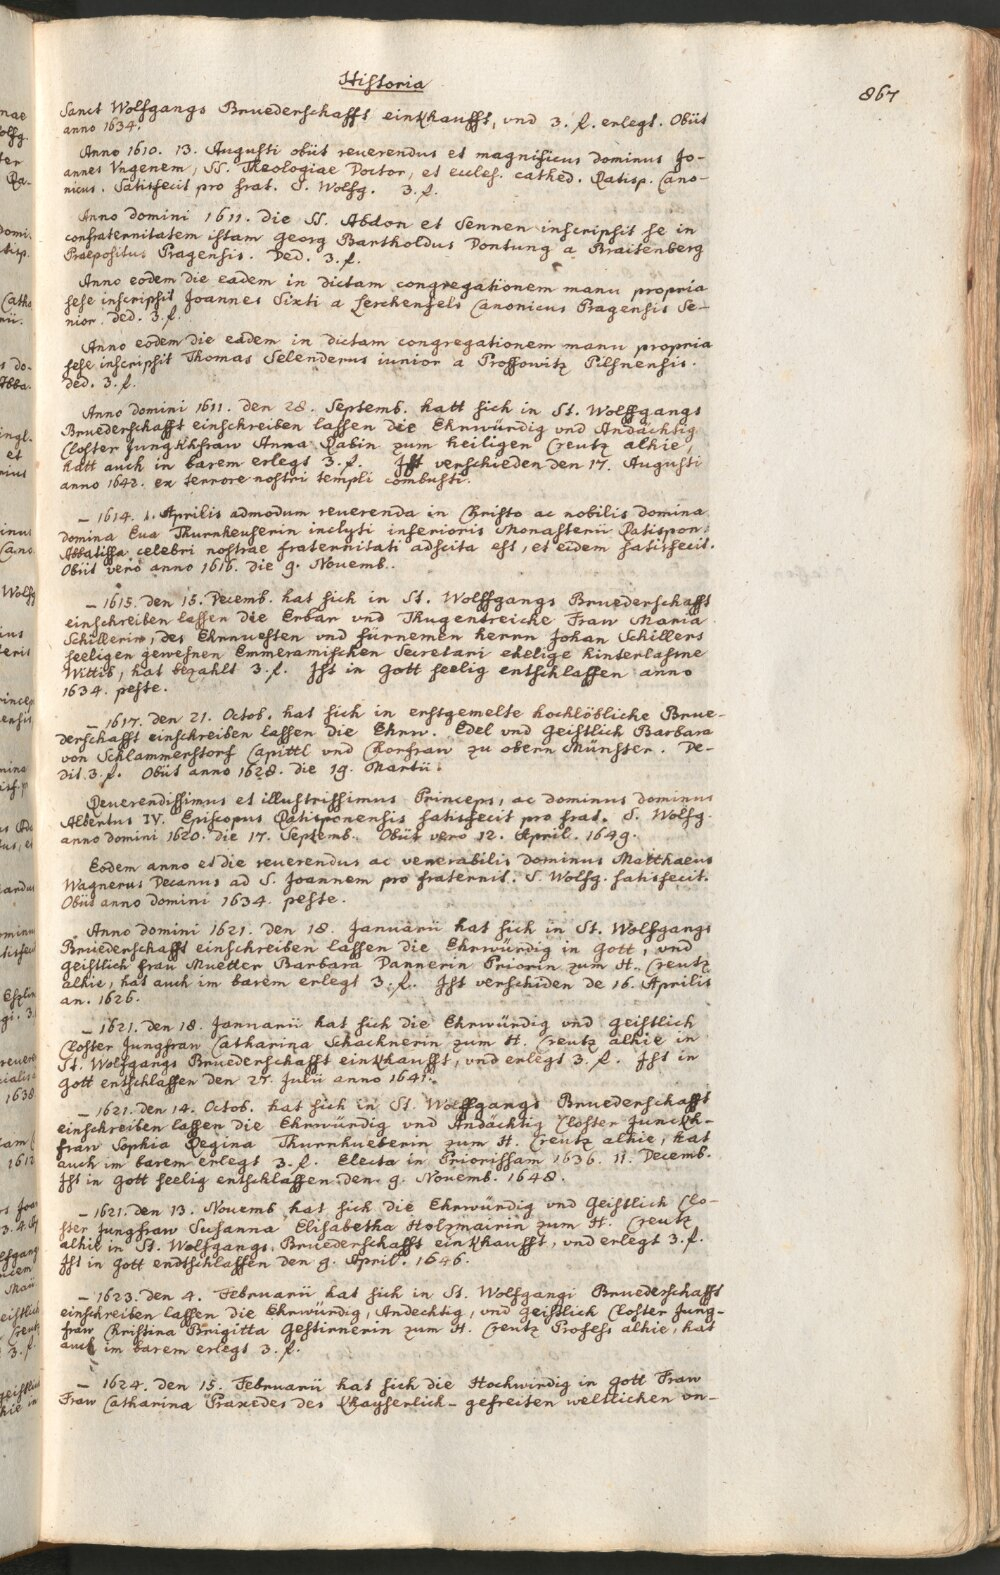 Historia
867
Sanct Wolfgangs Bruederschafft einkhaufft, vnd 3. f. erlegt. Obiit
anno 1634.
Anno 1610. 13. Augusti obiit reuerendus et magnificus dominus Jo-
annes Vngenem, SS. Theologiae Doctor, et eccles. cathed. Ratisp. Cano-
nicus. Satisfecit pro frat. S. Wolfg. 3. f.
Anno domini 1611. die SS. Abdon et Sennen inscripsit se in
confraternitatem istam Georg Bartholdus Pontung a Braitenberg
Praepositus Pragensis. Ded. 3. f.
Anno eodem die eadem in dictam congregationem manu propria
sese inscripsit Joannes Sixti a Lerchenfels Canonicus Pragensis Se-
nior. Ded. 3. f.
Anno eodem die eadem in dictam congregationem manu propria
sese inscripsit Thomas Selenderus iunior a Prossowitz Pilsnensis.
Ded. 3. f.
Anno domini 1611. den 28. Septemb. hatt sich in St. Wolffgangs
Bruederschafft einschreiben lassen die Ehrwürdig vnd Andächtig
Closter Jungkhfraw Anna Rabin zum heiligen Creutz alhie,
hatt auch in barem erlegt 3. f. Jst verschieden den 17. Augusti
anno 1642. ex terrore nostri templi combusti.
– 1614. 1. Aprilis admodum reuerenda in Christo ac nobilis domina
domina Eua Thurnheuserin inclyti inferioris Monasterii Ratispon.
Abbatissa celebri nostrae fraternitati adscita est, et eidem satisfecit.
Obiit vero anno 1616. die 9. Nouemb.
– 1615. den 15. Decemb. hat sich in St. Wolffgangs Bruederschafft
einschreiben lassen die Erbar vnd Thugentreiche Fraw Maria
Schillerin, des Ehrnuesten vnd fürnemen herrn Johan Schillers
seeligen gewesnen Emmeramischen Secretari ehelige hinterlassne
Wittib, hat bezahlt 3. f. Jst in Gott seelig entschlaffen anno
1634. peste.
– 1617. den 21. Octob. hat sich in erstgemelte hochlöbliche Brue-
derschafft einschreiben lassen die Ehrw. Edel vnd Geistlich Barbara
von Schlammerstorf Capittl vnd Chorfraw zu obern Münster. De-
dit 3. f. Obiit anno 1628. die 19. Martii.
Reuerendissimus et illustrissimus Princeps, ac dominus dominus
Albertus IV. Episcopus Ratisponensis satisfecit pro frat. S. Wolfg.
anno domini 1620. die 17. Septemb. Obiit vero 12. April. 1649.
Eodem anno et die reuerendus ac venerabilis dominus Matthaeus
Wagnerus Decanus ad S. Joannem pro fraternit. S. Wolfg. satisfecit.
Obiit anno domini 1634. peste.
Anno domini 1621. den 18. Januarii hat sich in St. Wolfgangs
Bruederschafft einschreiben lassen die Ehrwürdig in Gott, vnd
geistlich frau Muetter Barbara Dannerin Priorin zum H. Creutz
alhie, hat auch im barem erlegt 3. f. Jst verschiden de 16. Aprilis
an. 1626.
– 1621. den 18. Januarii hat sich die Ehrwürdig vnd geistlich
Closter Jungfraw Catharina Schachnerin zum H. Creutz alhie in
St. Wolfgangs Bruederschafft einkhaufft, vnd erlegt 3. f. Jst in
Gott entschlaffen den 27. Julii anno 1641.
– 1621. den 14. Octob. hat sich in St. Wolffgangs Bruederschafft
einschreiben lassen die Ehrwürdig vnd Andächtig Closter Junckh-
fraw Sophia Regina Thurnhueberin zum H. Creutz alhie, hat
auch im barem erlegt 3. f. Electa in Priorissam 1636. 11. Decemb.
Jst in Gott seelig entschlaffen den 9. Nouemb. 1648.
– 1621. den 13. Nouemb. hat sich die Ehrwürdig vnd Geistlich Clo-
ster Jungfraw Susanna Elisabetha Holzmairin zum H. Creutz
alhie in St. Wolfgangs Bruederschafft einkhaufft, vnd erlegt 3. f.
Jst in Gott endtschlaffen den 9. April. 1646.
– 1623. den 4. Februarii hat sich in St. Wolfgangi Bruederschafft
einschreiben lassen die Ehrwürdig, Andechtig, vnd geistlich Closter Jung-
fraw Christina Brigitta Gestirnerin zum H. Creutz Profess alhie, hat
auch im barem erlegt 3. f.
– 1624. den 15. Februarii hat sich die Hochwirdig in Gott Fraw
Fraw Catharina Praxedes des Khayserlich- gefreiten weltlichen vn-